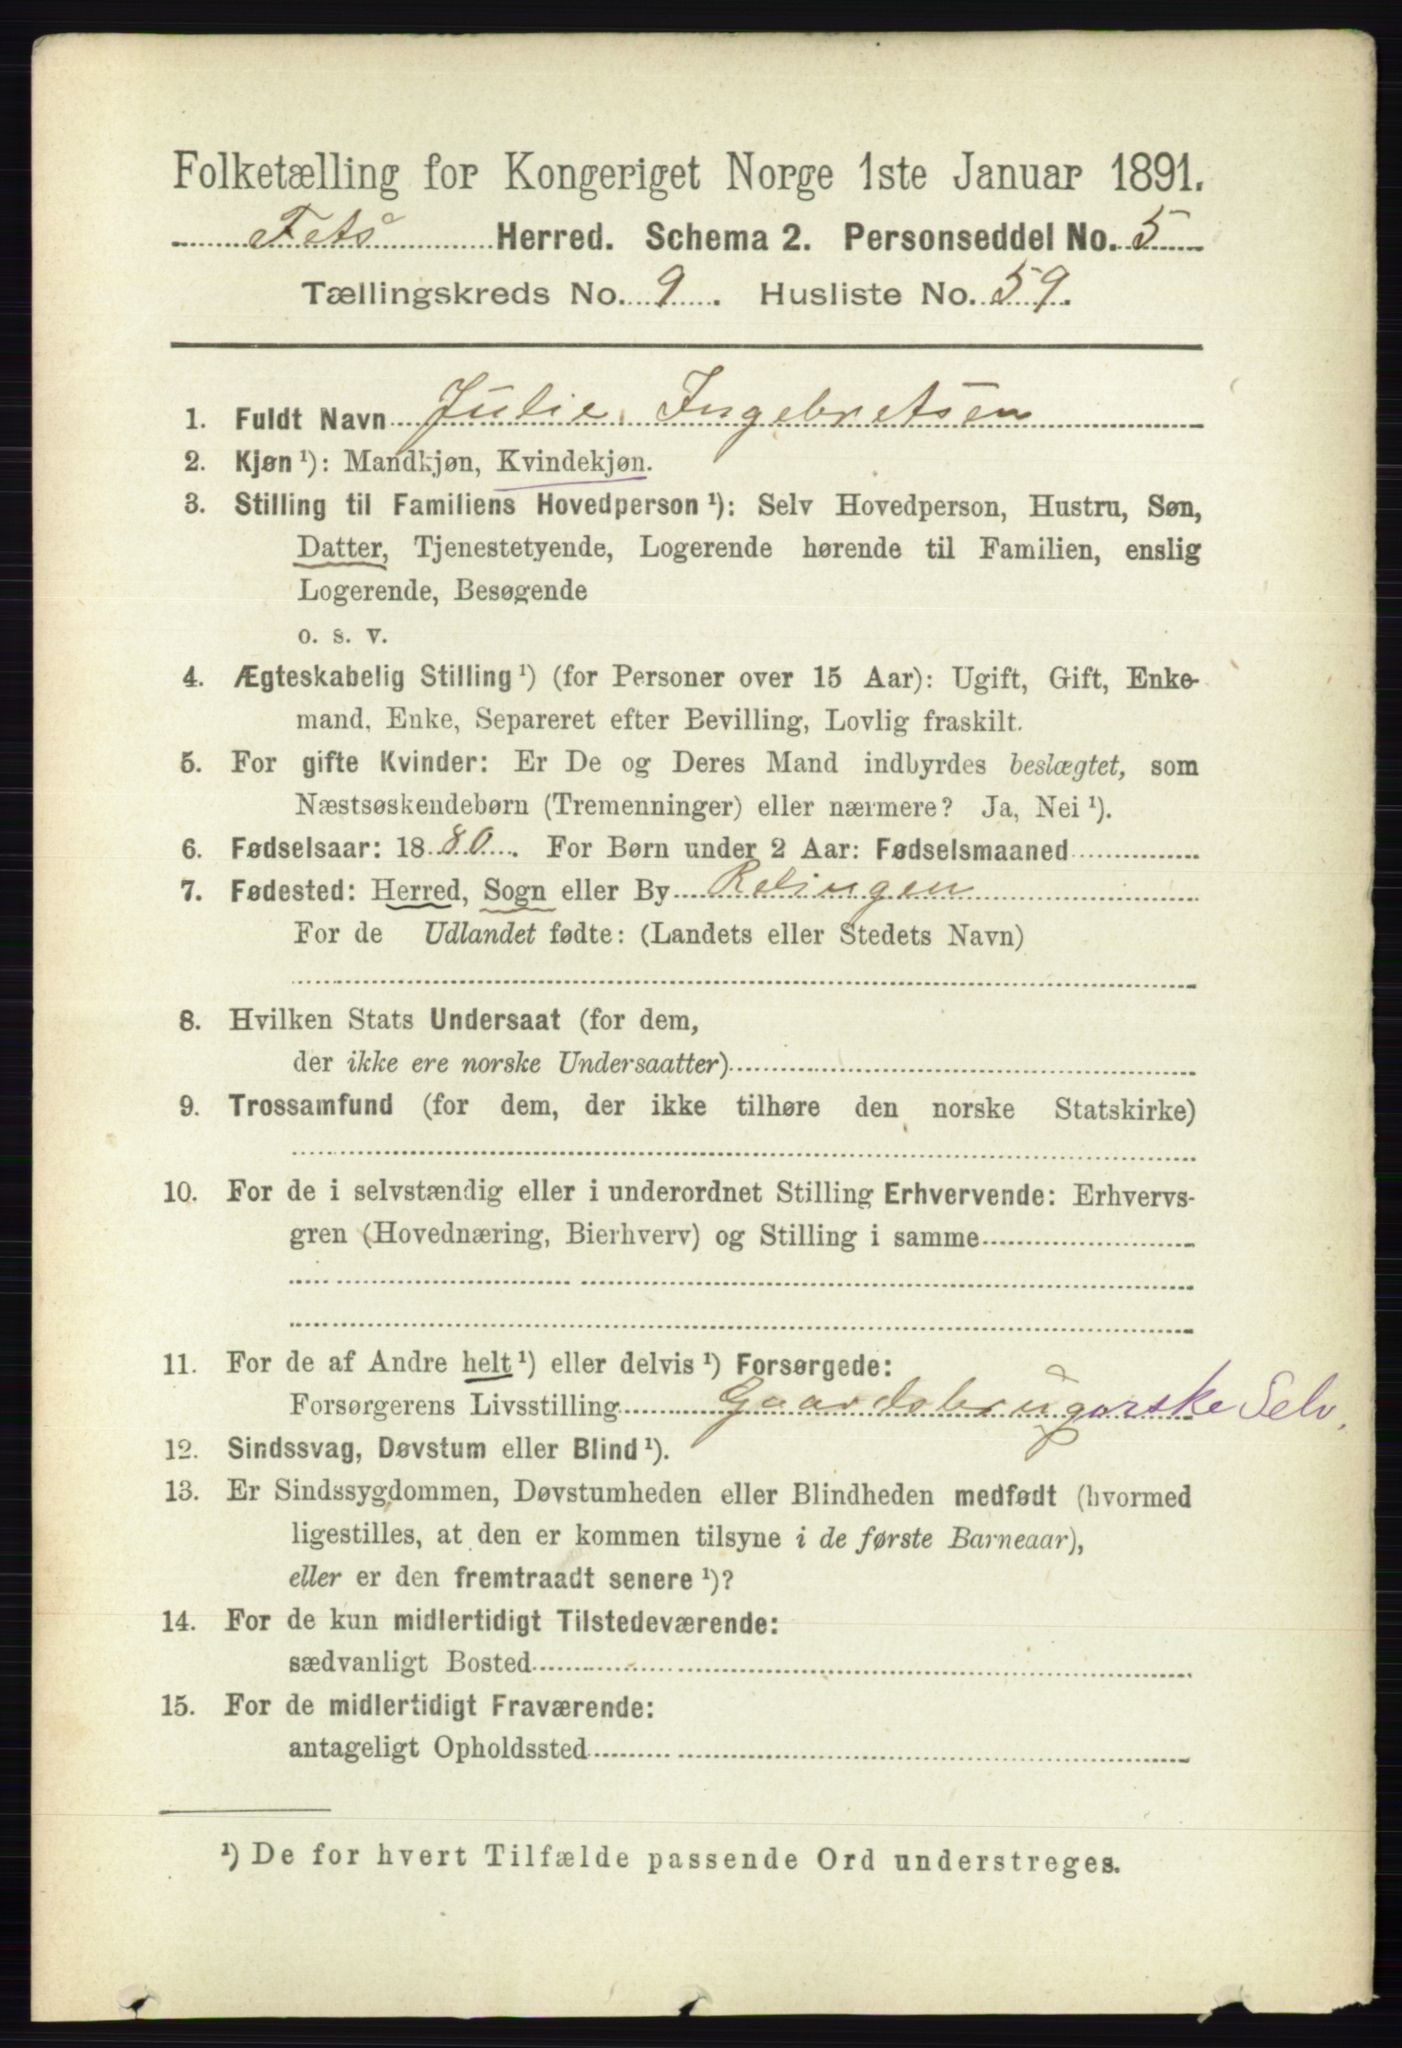 Folketælling for Kongeriget Norge 1ste Januar 1891.
Fets Herred. Schema 2. Personseddel No. 5
Tællingskreds No. 9. Husliste No. 59.
1. Fuldt Navn Julie Ingebretsen
2. Kjøn ¹): Mandkjøn, Kvindekjøn.
3. Stilling til Familiens Hovedperson ¹): Selv Hovedperson, Hustru, Søn,
Datter, Tjenestetyende, Logerende hørende til Familien, enslig
Logerende, Besøgende
o. s. v.
4. Ægteskabelig Stilling ¹) (for Personer over 15 Aar): Ugift, Gift, Enke-
mand, Enke, Separeret efter Bevilling, Lovlig fraskilt.
5. For gifte Kvinder: Er De og Deres Mand indbyrdes beslægtet, som
Næstsøskendebørn (Tremenninger) eller nærmere? Ja, Nei ¹).
6. Fødselsaar: 1880. For Børn under 2 Aar: Fødselsmaaned
7. Fødested: Herred, Sogn eller By Relingen
For de Udlandet fødte: (Landets eller Stedets Navn)
8. Hvilken Stats Undersaat (for dem,
der ikke ere norske Undersaatter)
9. Trossamfund (for dem, der ikke tilhøre den norske Statskirke)
10. For de i selvstændig eller i underordnet Stilling Erhvervende: Erhvervs-
gren (Hovednæring, Bierhverv) og Stilling i samme
11. For de af Andre helt ¹) eller delvis ¹) Forsørgede:
Forsørgerens Livsstilling Gaardbrugerske Selv.
12. Sindssvag, Døvstum eller Blind ¹).
13. Er Sindssygdommen, Døvstumheden eller Blindheden medfødt (hvormed
ligestilles, at den er kommen tilsyne i de første Barneaar),
eller er den fremtraadt senere ¹)?
14. For de kun midlertidigt Tilstedeværende:
sædvanligt Bosted
15. For de midlertidigt Fraværende:
antageligt Opholdssted
¹) De for hvert Tilfælde passende Ord understreges.